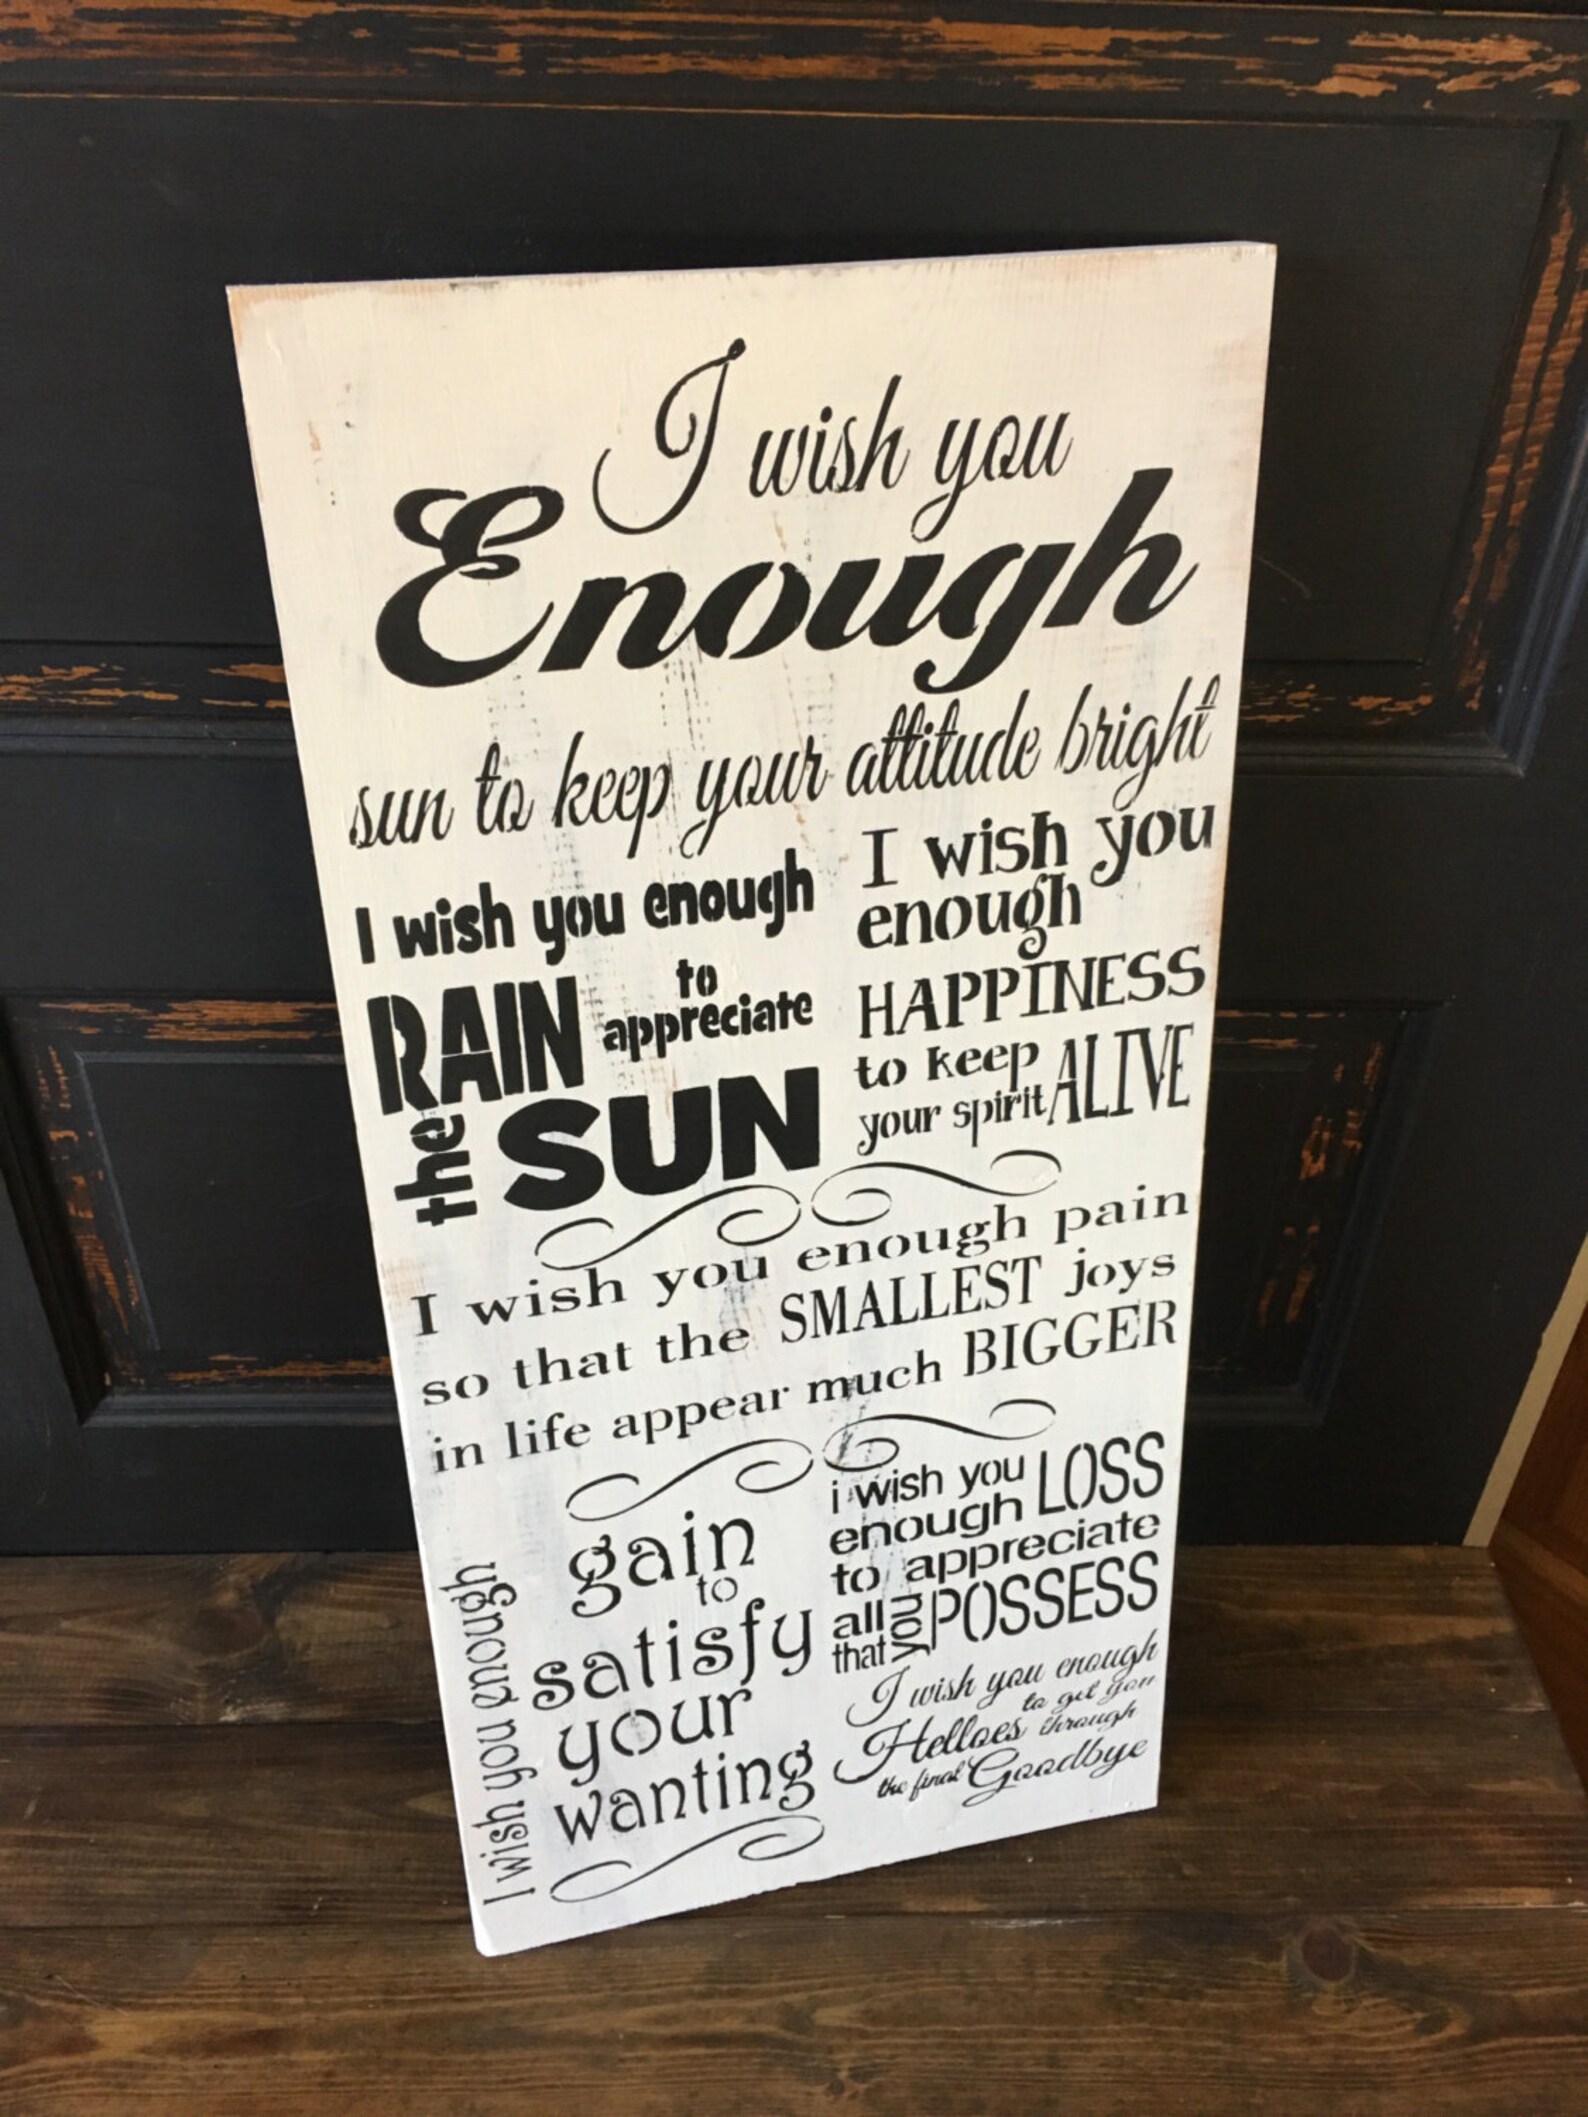 I wish you
Enough
sun to keep your attitude bright
I wish you enough
RAIN to
appreciate
the SUN
I wish you
enough
HAPPINESS
to keep
your spirit ALIVE
I wish you enough pain
so that the SMALLEST joys
in life appear much BIGGER
I wish you enough
gain
to
satisfy
your
wanting
i wish you LOSS
enough
to appreciate
all
that you POSSESS
I wish you enough
to get you
Helloes through
the final Goodbye